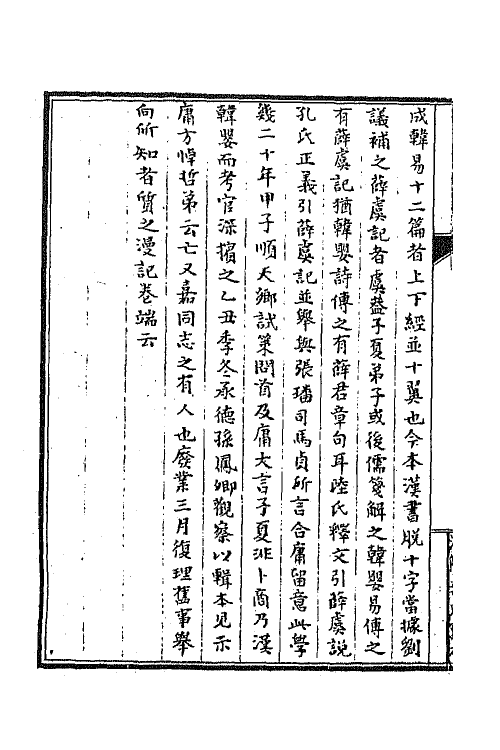 成韓易十二篇者上下經並十翼也今本漢書脫十字當據劉
議補之薛虞記者虞葢子夏弟子或後儒箋解之韓嬰易傳之
有薛虞記猶韓嬰詩傳之有薛君章句耳陸氏釋文引薛虞說
孔氏正義引薛虞記並舉與張璠司馬貞所言合庸留意此學
幾二十年甲子順天鄉試策問首及庸大言子夏非卜商乃漢
韓嬰而考官深擯之乙丑季冬承德孫鳳卿觀察以輯本見示
庸方悼哲弟云亡又嘉同志之有人也廢業三月復理舊事舉
向所知者質之漫記卷端云